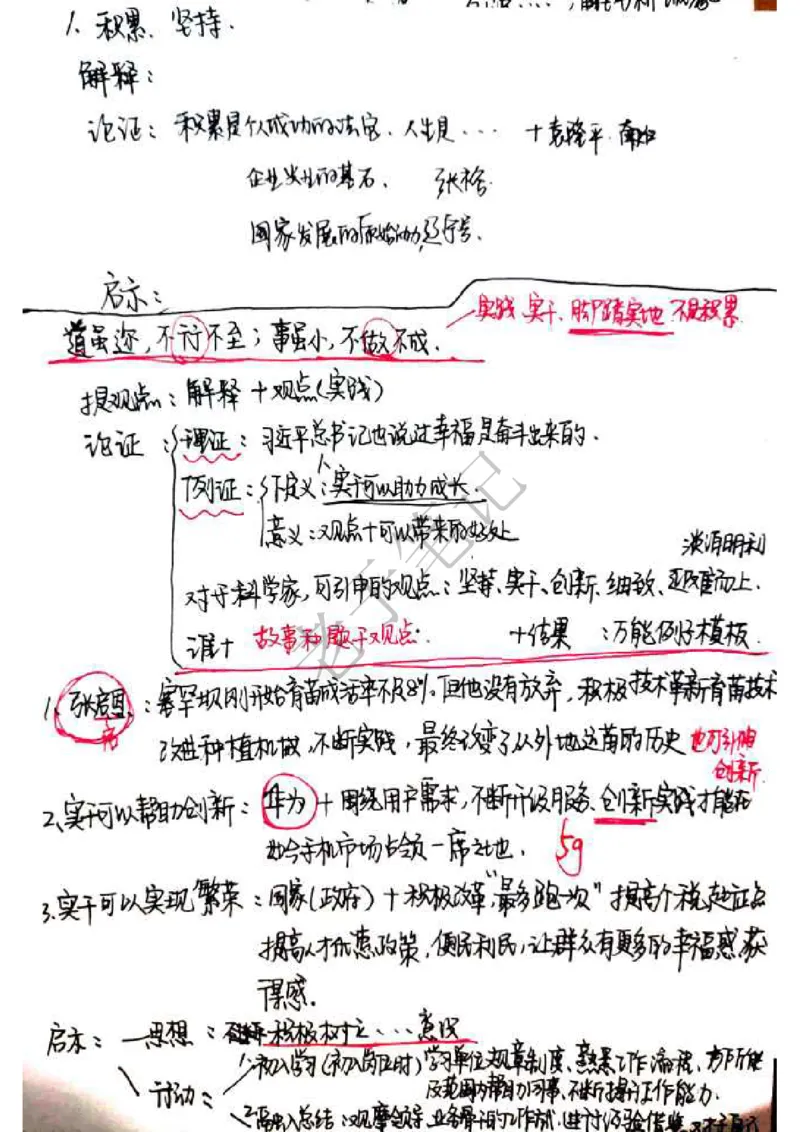 1. 积累、坚持.
解释：
论证：积累是个人成功的法宝、人生是... + 袁隆平、南仁
企业发展的基石、 张裕
国家发展的原始动力 辽宁号.
启示：
实践、实干、脚踏实地 不是积累
道虽迩，不行不至；事虽小，不做不成.
提观点：解释 + 观点(实践)
论证：理证：习近平总书记也说过幸福是奋斗出来的.
例证：下定义：实干可以助力成长.
意义：观点+可以带来的好处
淡泊明利
对于科学家，可引申的观点：坚持、实干、创新、细致、迎难而上.
谁+ 故事和题干观点. +结果 ：万能例子模板.
老于笔记
1、张启恩：塞罕坝刚开始育苗成活率不足8%. 但他没有放弃，积极技术革新育苗技术
改进种植机械，不断实践，最终改变了从外地运苗的历史 也可引申
创新.
2、实干可以帮助创新：华为 + 围绕用户需求，不断升级服务、创新实践才能在
如今手机市场占领一席之地. 5g
3.实干可以实现繁荣：国家(政府) + 积极改革"最多跑一次" 提高个税起征点
提高人才优惠政策，便民利民，让群众有更多的幸福感、获
得感.
启示：—思想：积极树立...意识
行动：1.初入学习(初入岗位时) 学习单位规章制度、熟悉工作流程，
及范围内帮助同事、不断提升工作能力.
2.融入总结：观摩领导、